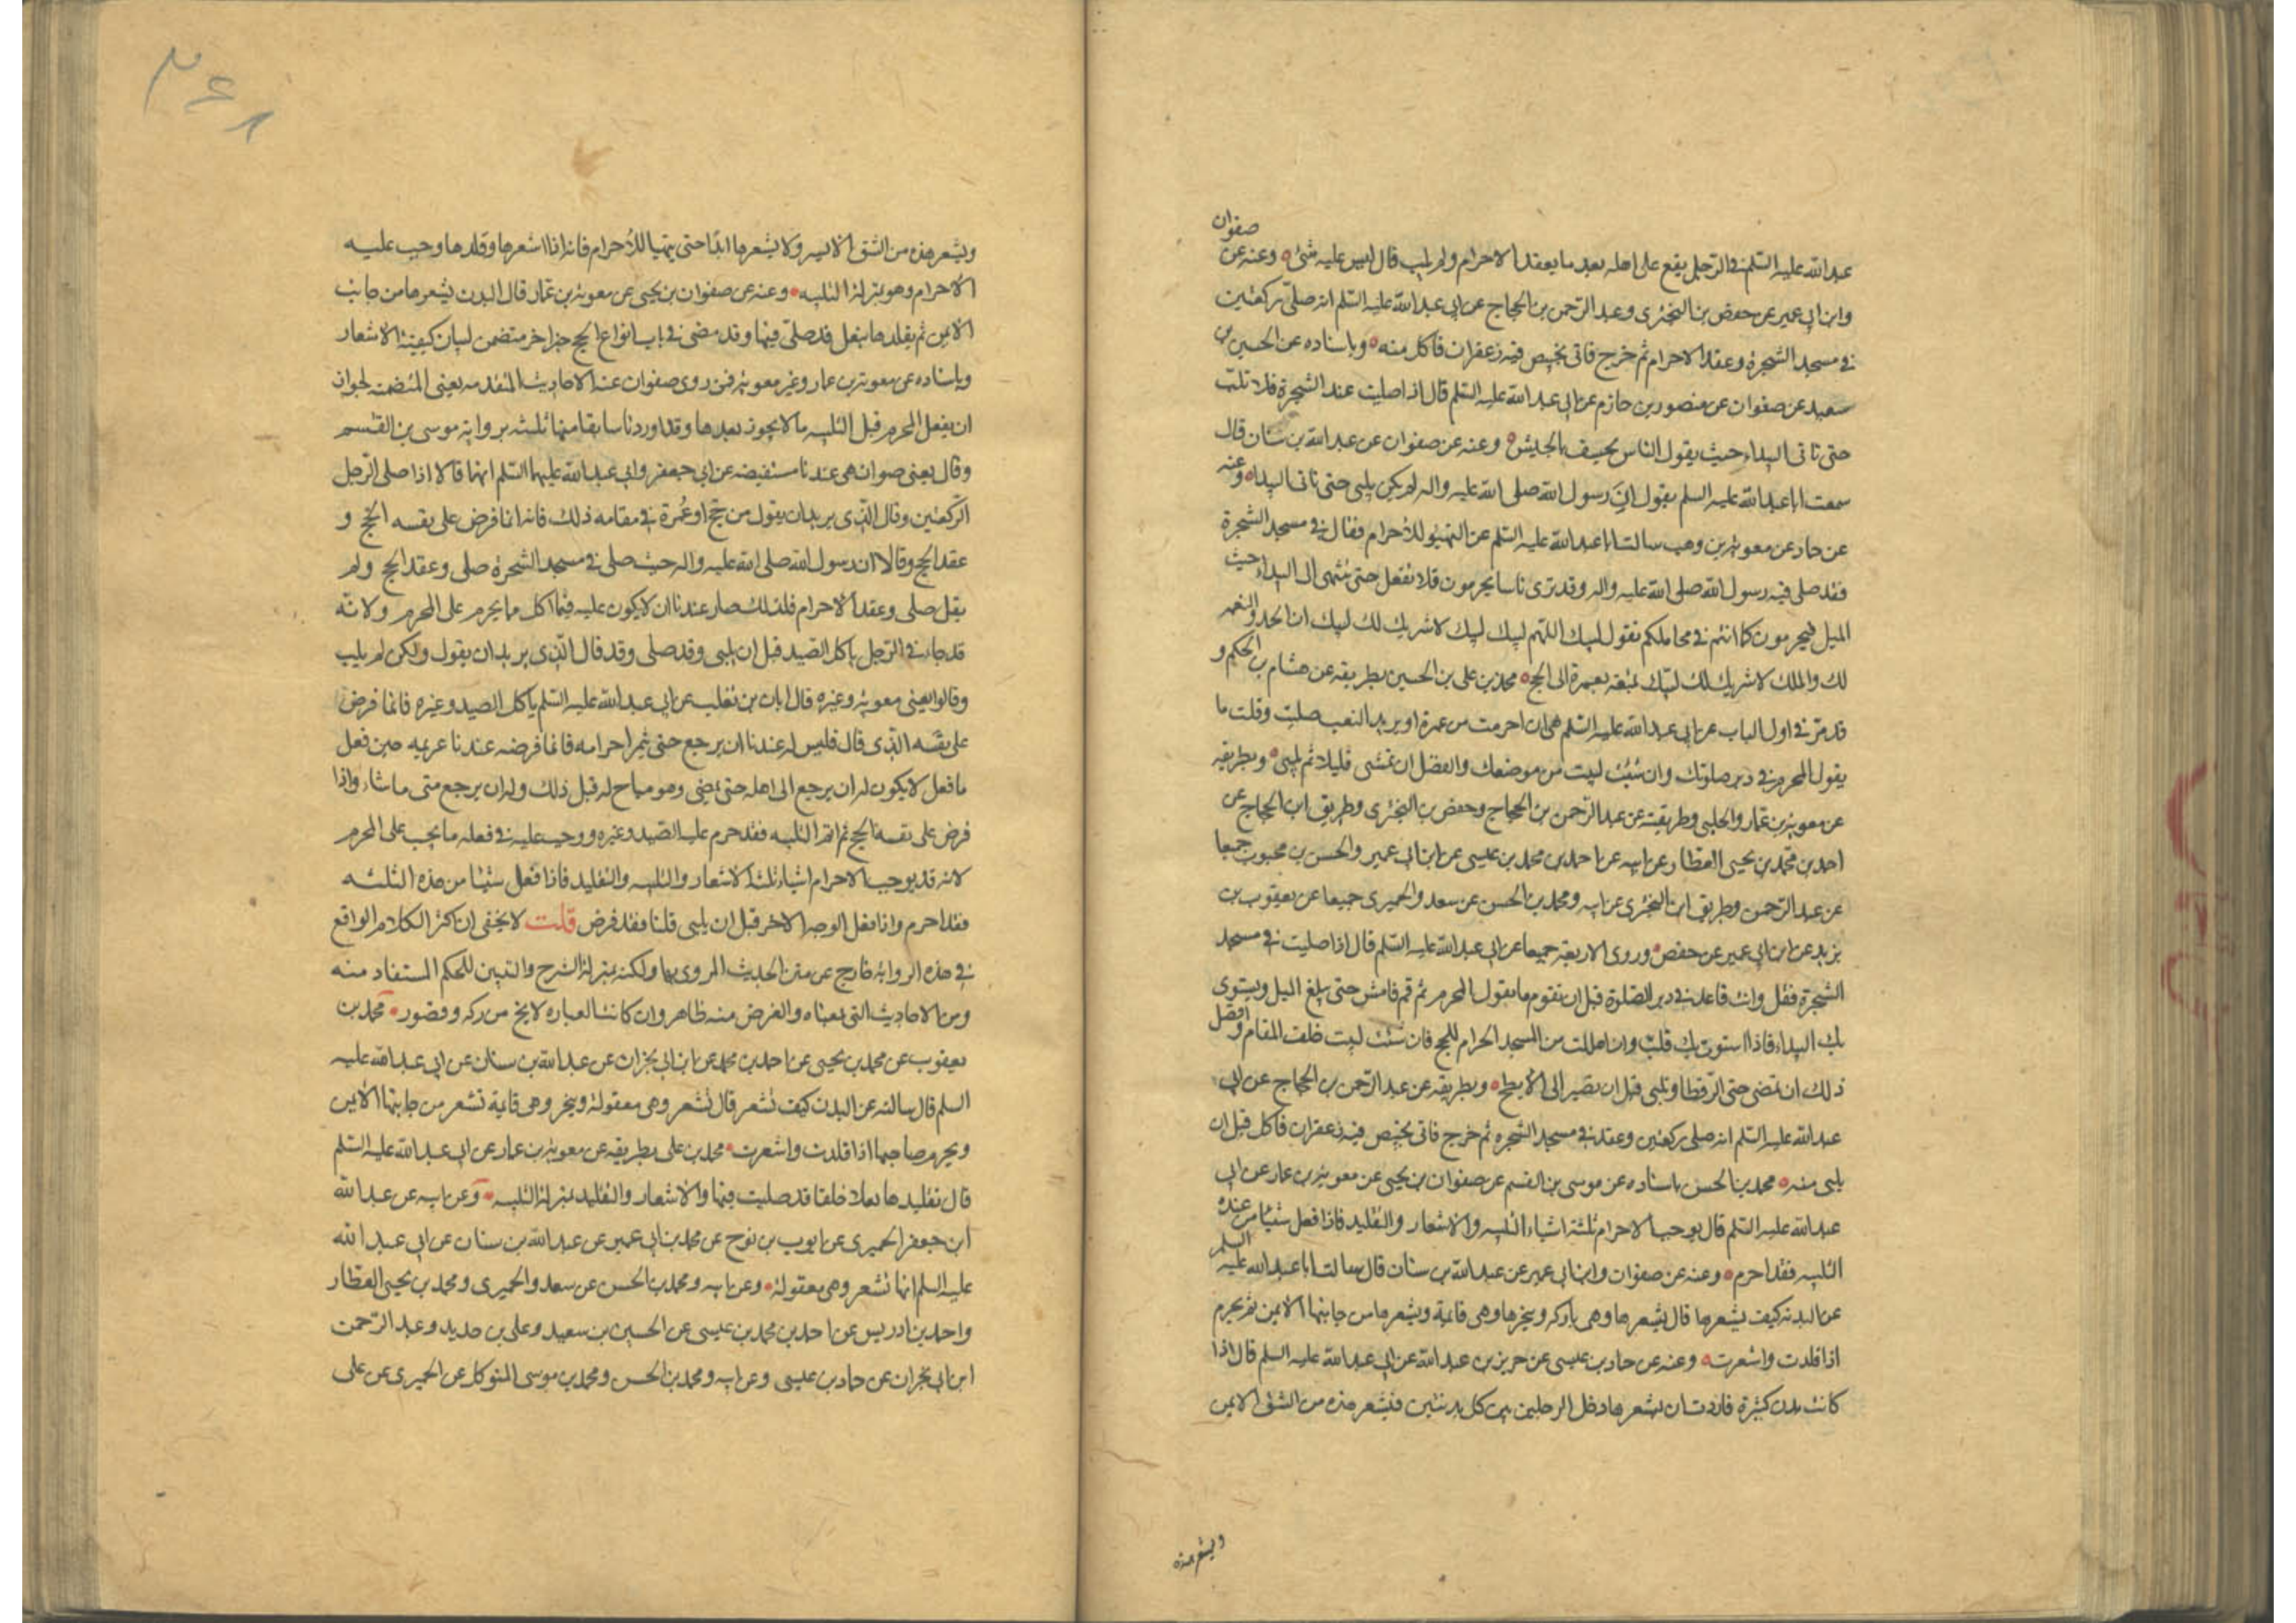 صفوان
عبد الله عليه السلم في الرجل يقع على اهله بعد ما يعقد الاحرام ولم يلب قال ليس عليه شئ وعنه عن
وابن ابي عمير عن حفص بن البختري وعبد الرحمن بن الحجاج عن ابي عبد الله عليه السلم انه صلى ركعتين
في مسجد الشجرة وعقد الاحرام ثم خرج فاتى بخبيص فيه زعفران فاكل منه وباسناده عن الحسين بن
سعيد عن صفوان عن منصور بن حازم عن ابي عبد الله عليه السلم قال اذا صليت عند الشجرة فلا تلب
حتى تاتى البيداء حيث يقول الناس يخسف بالجيش وعنه عن صفوان عن عبد الله بن سنان قال
سمعت ابا عبد الله عليه السلم يقول ان رسول الله صلى الله عليه واله لم يكن يلبى حتى تاتى البيداء وعنه
عن حماد عن معوية بن وهب سالت ابا عبد الله عليه السلم عن التهيؤ للاحرام فقال في مسجد الشجرة
فقد صلى فيه رسول الله صلى الله عليه واله وقد ترى ناسا يحرمون فلا تفعل حتى تنتهى الى البيداء حيث
الميل فيحرمون كما انتم في محاملكم تقول لبيك اللهم لبيك لبيك لا شريك لك لبيك ان الحمد والنعمه
لك والملك لا شريك لك لبيك بمتعة بعمرة الى الحج محمد بن علي بن الحسين بطريقه عن هشام بن الحكم و
قد مر في اول الباب عن ابي عبد الله عليه السلم هى ان احرمت من غمرة او بريد البعث صليت وقلت ما
يقول المحرم في دبر صلوتك وان شئت لبيت من موضعك والفضل ان تمشى قليلا ثم تلبى وبطريقه
عن معوية بن عمار والحلبى وطريقيه عن عبد الرحمن بن الحجاج وحفص بن البختري وطريق ابن الحجاج عن
احمد بن محمد بن يحيى العطار عن ابيه عن احمد بن محمد بن عيسى عن ابن ابي عمير والحسن بن محبوب جميعا
عن عبد الرحمن وطريق ابن البختري عن ابيه ومحمد بن الحسن عن سعد والحميرى جميعا عن يعقوب بن
يزيد عن ابن ابي عمير عن حفص وروى الاربعة جميعا عن ابي عبد الله عليه السلم قال اذا صليت في مسجد
الشجرة فقل وانت قاعد في دبر الصلوة قبل ان تقوم ما يقول المحرم ثم قم فامش حتى يبلغ الميل ويستوى
بك البيداء فاذا استوت بك فلب وان اهللت من المسجد الحرام للحج فان شئت لبيت خلف المقام وافضل
ذلك ان تمضى حتى الرقطا وتلبى قبل ان تصير الى الابطح وبطريقه عن عبد الرحمن بن الحجاج عن ابي
عبد الله عليه السلم انه صلى ركعتين وعقد في مسجد الشجره ثم خرج فاتى بخبيص فيه زعفران فاكل قبل ان
يلبى منه محمد بن الحسن باسناده عن موسى بن القسم عن صفوان بن يحيى عن معوية بن عمار عن ابي
عبد الله عليه السلم قال يوجب الاحرام ثلثة اشياء التلبيه والاشعار والتقليد فاذا فعل شيئا من هذه
الثلثه فقد احرم وعنه عن صفوان وابن ابي عمير عن عبد الله بن سنان قال سالت ابا عبد الله عليه السلم
عن البدنه كيف يشعرها قال يشعرها وهى باركه وينحرها وهى قائمة ويشعرها من جانبها الايمن ثم يحرم
اذا قلدت واشعرت وعنه عن حماد بن عيسى عن حريز بن عبد الله عن ابي عبد الله عليه السلم قال اذا
كانت بدن كثيرة فاردت ان تشعرها دخل الرجل بين كل بدنتين فيشعر هذه من الشق الايمن
ويشعر هذه
٣٤٨
ويشعر هذه من الشق الايسر ولا يشعرها ابدا حتى يتهيا للاحرام فانه اذا اشعرها وقلدها وجب عليه
الاحرام وهو بمنزلة التلبيه وعنه عن صفوان بن يحيى عن معوية بن عمار قال البدن يشعرها من جانب
الايمن ثم يقلدها بنعل قد صلى فيها وقد مضى في باب انواع الحج خبر اخر متضمن لبيان كيفية الاشعار
وباسناده عن معوية بن عمار وغير معوية فمن روى صفوان عنه الاحاديث المتقدمه يعنى المتضمنه لجواز
ان يفعل المحرم قبل التلبيه ما لا يجوز بعدها وقد اوردنا سابقا منها ثلثه برواية موسى بن القسم
وقال يعنى صفوان هى عندنا مستفيضه عن ابي جعفر وابي عبد الله عليهما السلم انهما قالا اذا صلى الرجل
الركعتين وقال الذى يريد ان يقول من حج او عمرة في مقامه ذلك فانه انما فرض على نفسه الحج و
عقد الحج وقالا ان رسول الله صلى الله عليه واله حيث صلى في مسجد الشجرة صلى وعقد الحج ولم
يقل صلى وعقد الاحرام فلذلك صار عندنا ان لا يكون عليه فيما اكل مما يحرم على المحرم ولانه
قد جاء في الرجل ياكل الصيد قبل ان يلبى وقد صلى وقد قال الذى يريد ان يقول ولكن لم يلب
وقالوا يعنى معوية وغيره قال ابان بن تغلب عن ابي عبد الله عليه السلم ياكل الصيد وغيره فانما فرض
على نفسه الذى قال فليس له عندنا ان يرجع حتى يتم احرامه فانما فرضه عندنا عزيمه حين فعل
ما فعل لا يكون له ان يرجع الى اهله حتى يمضى وهو مباح له قبل ذلك وله ان يرجع متى ما شاء واذا
فرض على نفسه الحج ثم اتم التلبيه فقد حرم عليه الصيد وغيره ووجب عليه في فعله ما يجب على المحرم
لانه قد يوجب الاحرام اشياء ثلثة الاشعار والتلبيه والتقليد فاذا فعل شيئا من هذه الثلثه
فقد احرم واذا فعل الوجه الاخر قبل ان يلبى قلنا فقد فرض قلت لا يخفى ان اكثر الكلام الواقع
في هذه الرواية خارج عن متن الحديث المروى بها ولكنه بمنزلة الشرح والتبيين للحكم المستفاد منه
ومن الاحاديث التى بمعناه والغرض منه ظاهر وان كانت العباره لا يخ من ركه وقصور محمد بن
يعقوب عن محمد بن يحيى عن احمد بن محمد عن ابن ابي نجران عن عبد الله بن سنان عن ابي عبد الله عليه
السلم قال سالته عن البدن كيف تشعر قال تشعر وهى معقولة وينحر وهى قايمة تشعر من جانبها الايمن
ويحرم صاحبها اذا قلدت واشعرت محمد بن علي بطريقه عن معوية بن عمار عن ابي عبد الله عليه السلم
قال تقليدها نعلا خلقا قد صليت فيها والاشعار والتقليد بمنزلة التلبيه وعن ابيه عن عبد الله
ابن جعفر الحميرى عن ايوب بن نوح عن محمد بن ابي عمير عن عبد الله بن سنان عن ابي عبد الله
عليه السلم انها تشعر وهى معقولة وعن ابيه ومحمد بن الحسن عن سعد والحميرى ومحمد بن يحيى العطار
واحمد بن ادريس عن احمد بن محمد بن عيسى عن الحسين بن سعيد وعلى بن حديد وعبد الرحمن
ابن ابي نجران عن حماد بن عيسى وعن ابيه ومحمد بن الحسن ومحمد بن موسى المتوكل عن الحميرى عن على